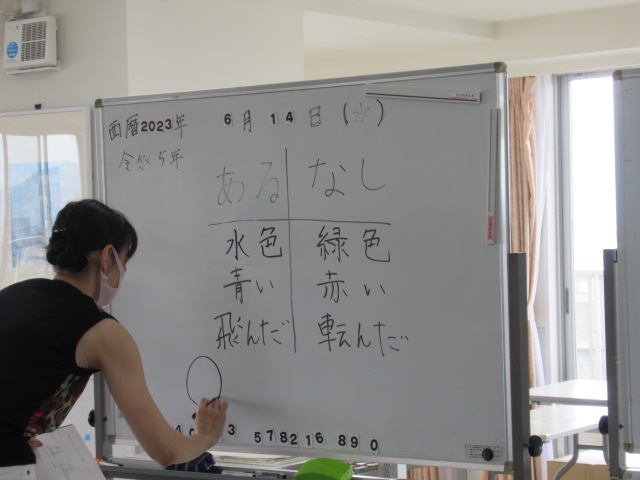 西暦2023年 6月14日(水)
令和5年
ある なし
水色 緑色
青い 赤い
飛んだ 転んだ
3 578216 890